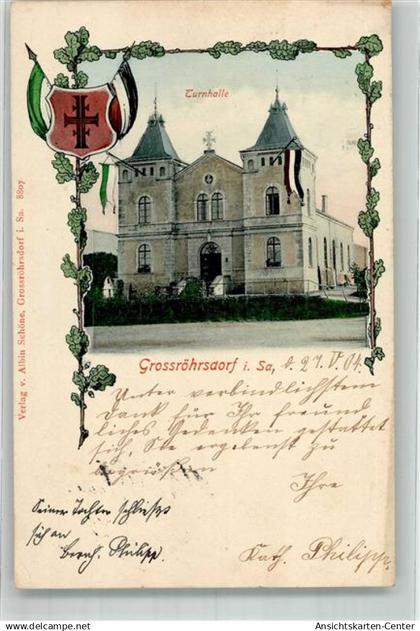 Turnhalle
Verlag v. Albin Schöne, Grossröhrsdorf i. Sa. 8807
Grossröhrsdorf i. Sa, d. 27. V. 04.
Unter verbindlichstem
Dank für Ihr freund
liches Gedenken gestattet
sich, Sie ergebenst zu
begrüssen
Ihre
Kath. Philipp.
Seiner Tochter schliesst
sich an
Bernh. Philipp.
Ansichtskarten-Center